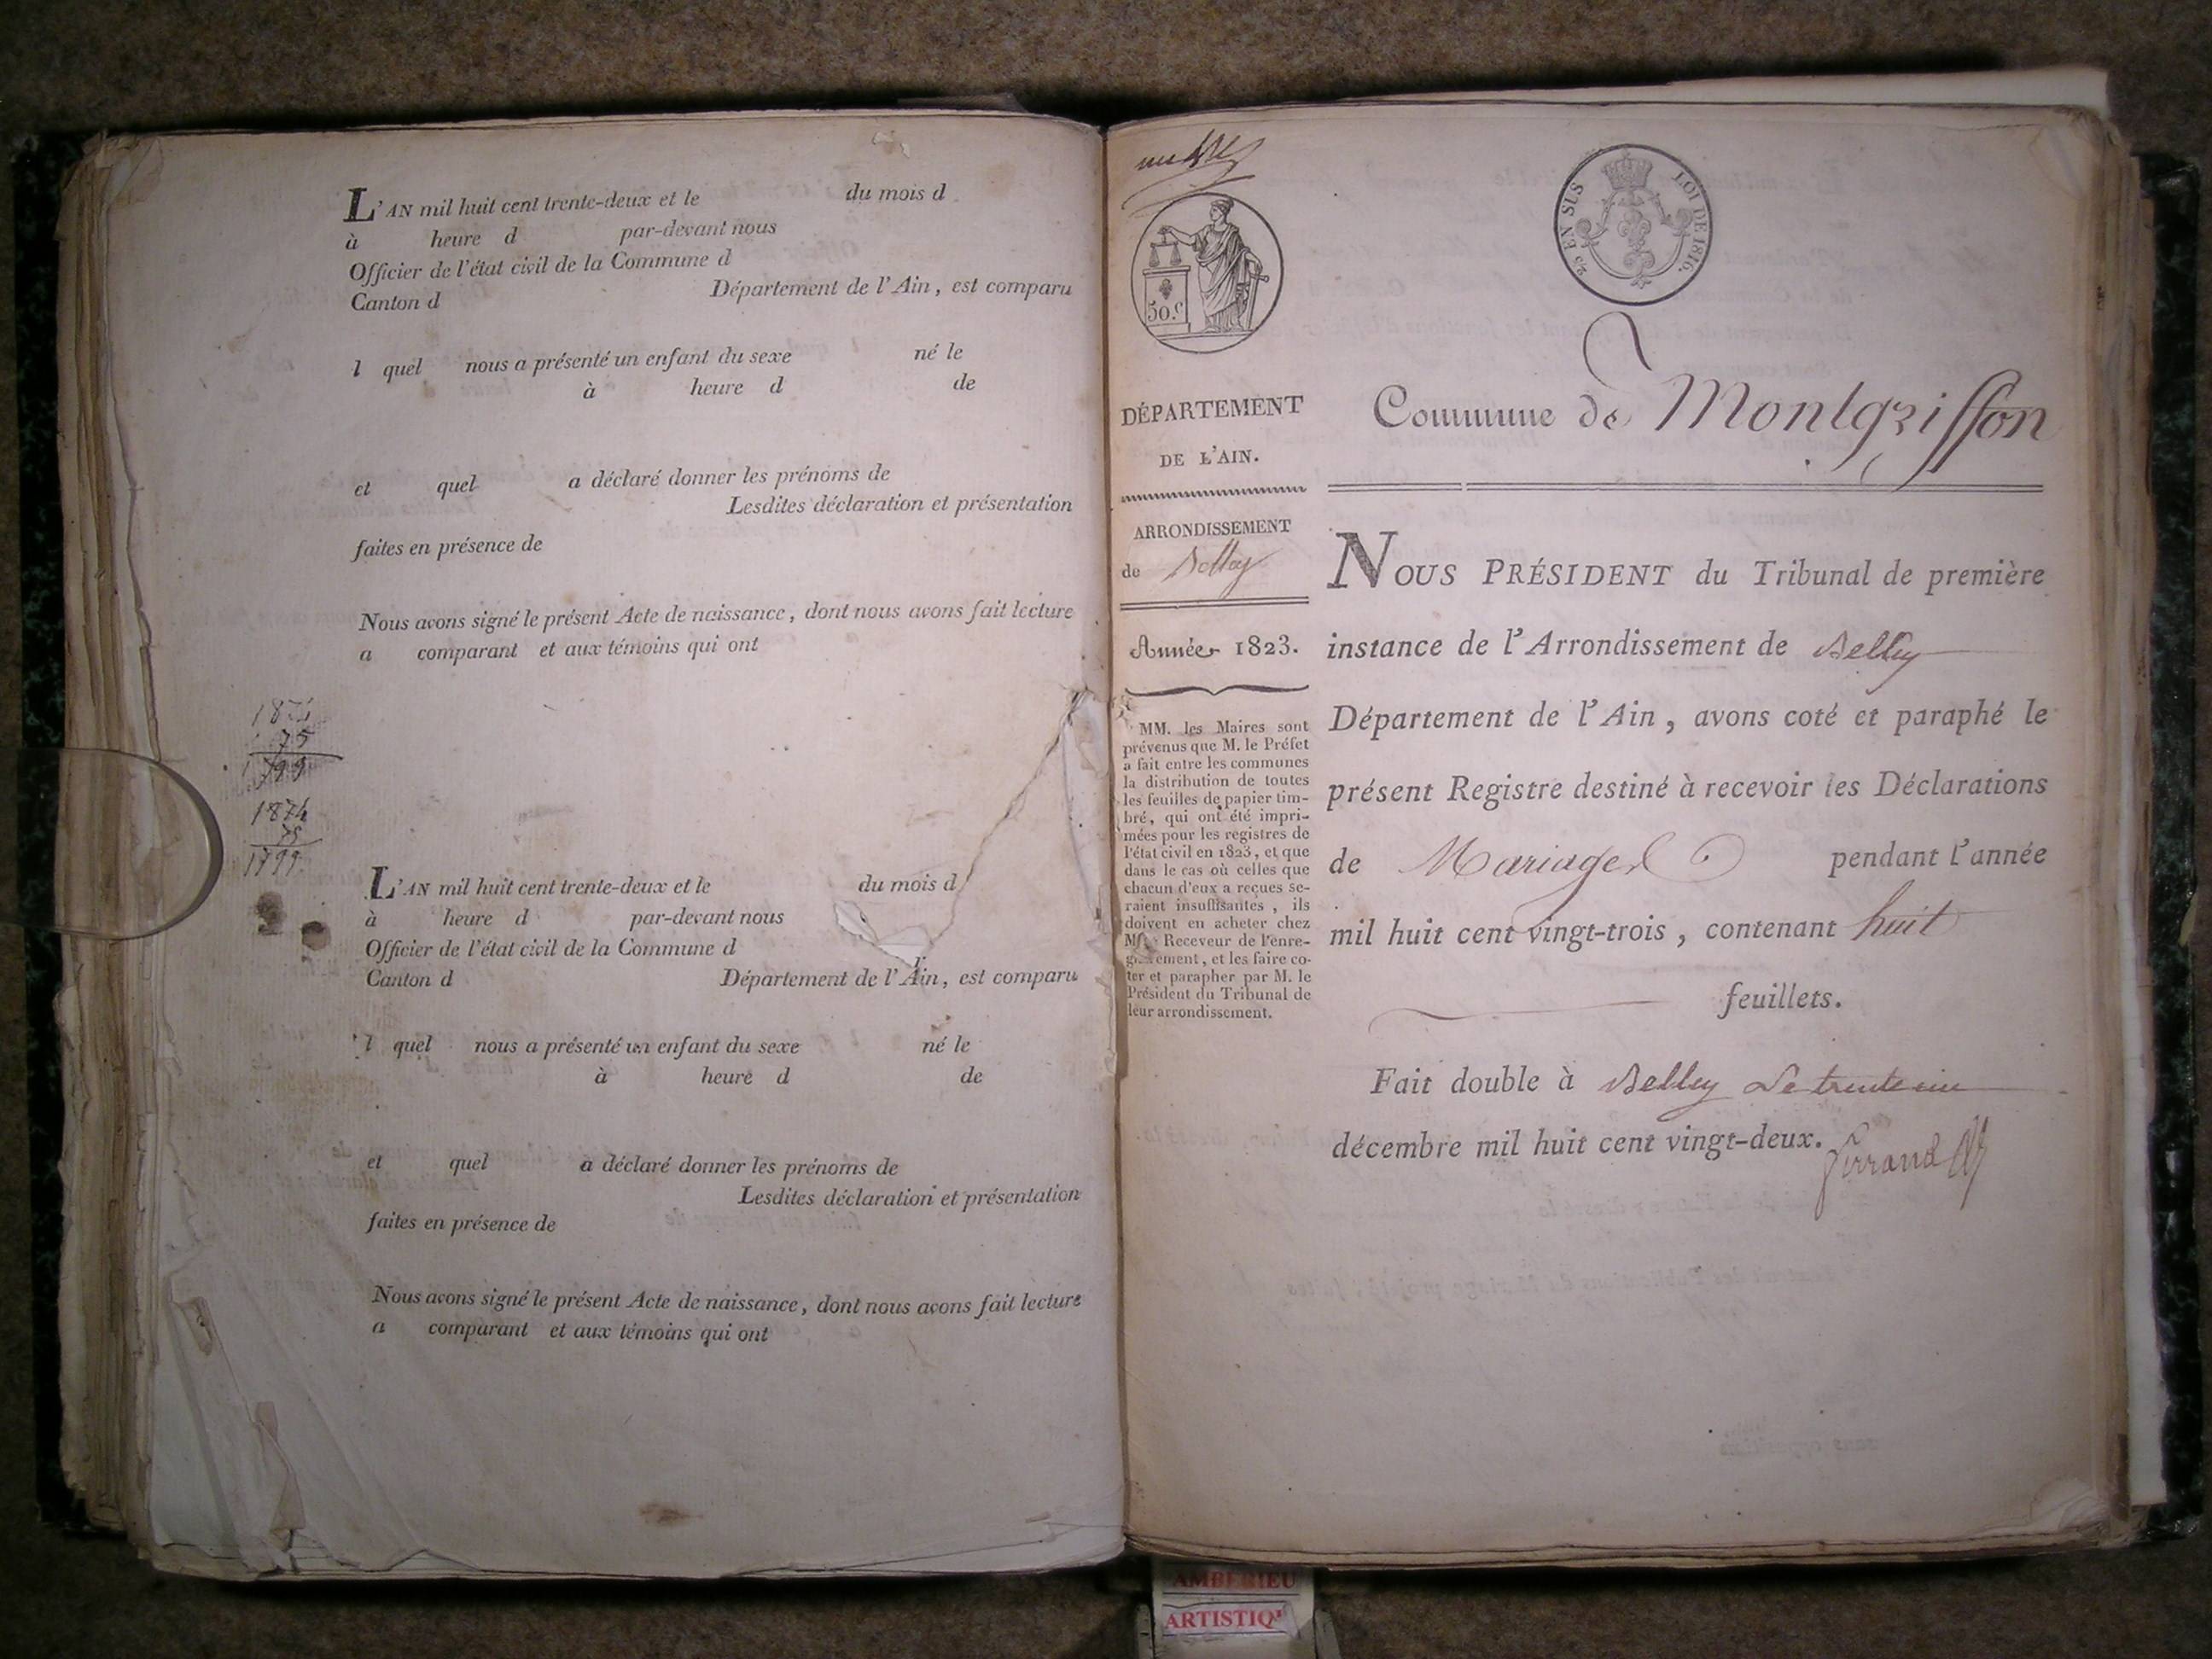 L'AN mil huit cent trente-deux et le du mois d
à heure d par-devant nous
Officier de l'état civil de la Commune d
Canton d Département de l'Ain, est comparu
l quel nous a présenté un enfant du sexe né le
à heure d de
et quel a déclaré donner les prénoms de
Lesdites déclaration et présentation
faites en présence de
Nous avons signé le présent Acte de naissance, dont nous avons fait lecture
a comparant et aux témoins qui ont
75
1874
75
1799
L'AN mil huit cent trente-deux et le du mois d
à heure d par-devant nous
Officier de l'état civil de la Commune d
Canton d Département de l'Ain, est comparu
l quel nous a présenté un enfant du sexe né le
à heure d de
et quel a déclaré donner les prénoms de
Lesdites déclaration et présentation
faites en présence de
Nous avons signé le présent Acte de naissance, dont nous avons fait lecture
a comparant et aux témoins qui ont
50.c
DÉPARTEMENT
DE L'AIN.
ARRONDISSEMENT
de Belley
Année 1823.
MM. les Maires sont
prévenus que M. le Préfet
a fait entre les communes
la distribution de toutes
les feuilles de papier tim-
bré, qui ont été impri-
mées pour les registres de
l'état civil en 1823, et que
dans le cas où celles que
chacun d'eux a reçues se-
raient insuffisantes, ils
doivent en acheter chez
Receveur de l'enre-
gistrement, et les faire co-
ter et parapher par M. le
Président du Tribunal de
leur arrondissement.
25 EN SUS LOI DE 1816.
Commune de Montgriffon
NOUS PRÉSIDENT du Tribunal de première
instance de l'Arrondissement de Belley
Département de l'Ain, avons coté et paraphé le
présent Registre destiné à recevoir les Déclarations
de Mariages pendant l'année
mil huit cent vingt-trois, contenant huit
feuillets.
Fait double à Belley Le trente un
décembre mil huit cent vingt-deux.
AMBERIEU
ARTISTIQ